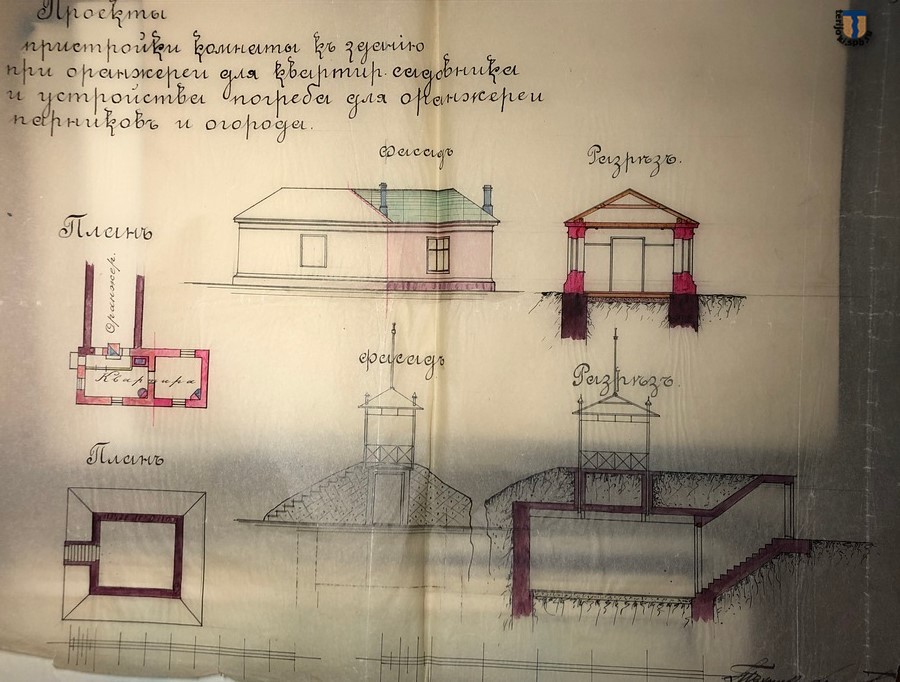 Проекты
пристройки комнаты къ зданію
при оранжереи для квартир. садовника
и устройства погреба для оранжереи
парниковъ и огорода.
Фасадъ
Разрѣзъ.
Планъ
Оранжер.
Квартира
фасадъ
Разрѣзъ.
Планъ